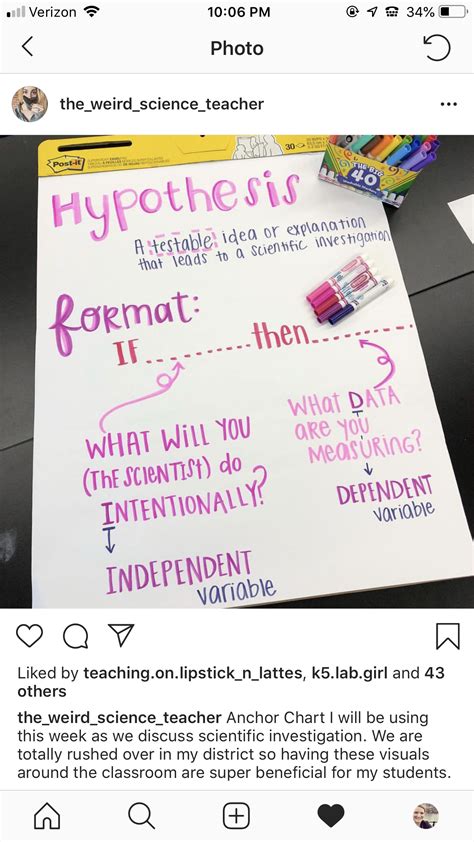 Verizon 10:06 PM 34%
Photo
the_weird_science_teacher
Post-it
30
THE BIG 40
HYPOTHESIS
A testable idea or explanation
that leads to a scientific investigation
format:
IF........ then........
WHAT WILL YOU
(THE SCIENTIST) do
INTENTIONALLY?
INDEPENDENT
variable
WHAT DATA
are you
MEASURING?
DEPENDENT
variable
Liked by teaching.on.lipstick_n_lattes, k5.lab.girl and 43
others
the_weird_science_teacher Anchor Chart I will be using
this week as we discuss scientific investigation. We are
totally rushed over in my district so having these visuals
around the classroom are super beneficial for my students.